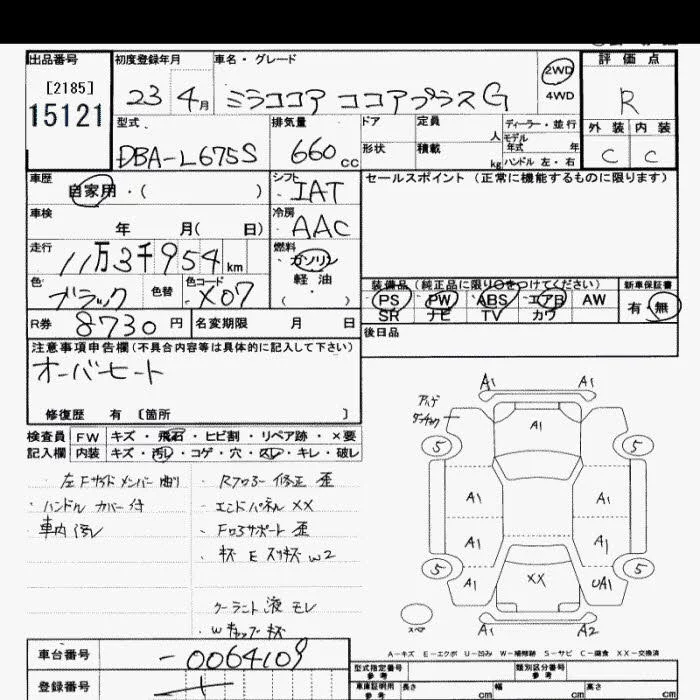 出品番号 初度登録年月 車名・グレード 2WD 評価点
[2185] 23 4月 ミラココア ココアプラスG 4WD R
15121
型式 排気量 ドア 定員 人 ディーラー・並行 外装 内装
DBA-L675S 660cc 形状 積載 kg モデル年式 年 ハンドル 左・右 C C
車歴 シフト セールスポイント(正常に機能するものに限ります)
自家用・( ) IAT
車検 年 月( 日) 冷房 AAC
走行 11万3千954km 燃料 ガソリン
軽油
( )
色 ブラック 色替 色コード X07
装備品(純正品に限り○をつけてください) 新車保証書
PS PW ABS エアB AW 有・無
SR ナビ TV カワ
R券 8730円 名変期限 月 日 後日品
注意事項申告欄(不具合内容等は具体的に記入して下さい)
オーバーヒート
修復歴 有 〔箇所 〕
検査員 FW キズ・飛石・ヒビ割・リペア跡・×要
記入欄 内装 キズ・汚レ・コゲ・穴・スレ・キレ・破レ
左Fサイドメンバー曲り
・ハンドルカバー付
・車内汚レ
・Rフロアー修正歪
・エンドパネルXX
・Fロアサポート歪
・キズEスリキズW2
クーラント液モレ
A1 A1
A1
5 5
A1 A1
A1 A1
5 5
A1 XX UA1
スペア A1 A2
A-キズ E-エクボ U-凹み W-補修跡 S-サビ C-腐食 XX-交換済
車台番号 -0064109
登録番号
型式指定番号 参考 類別区分番号 参考
車庫証明用 参考 長さ cm 幅 cm 高さ cm